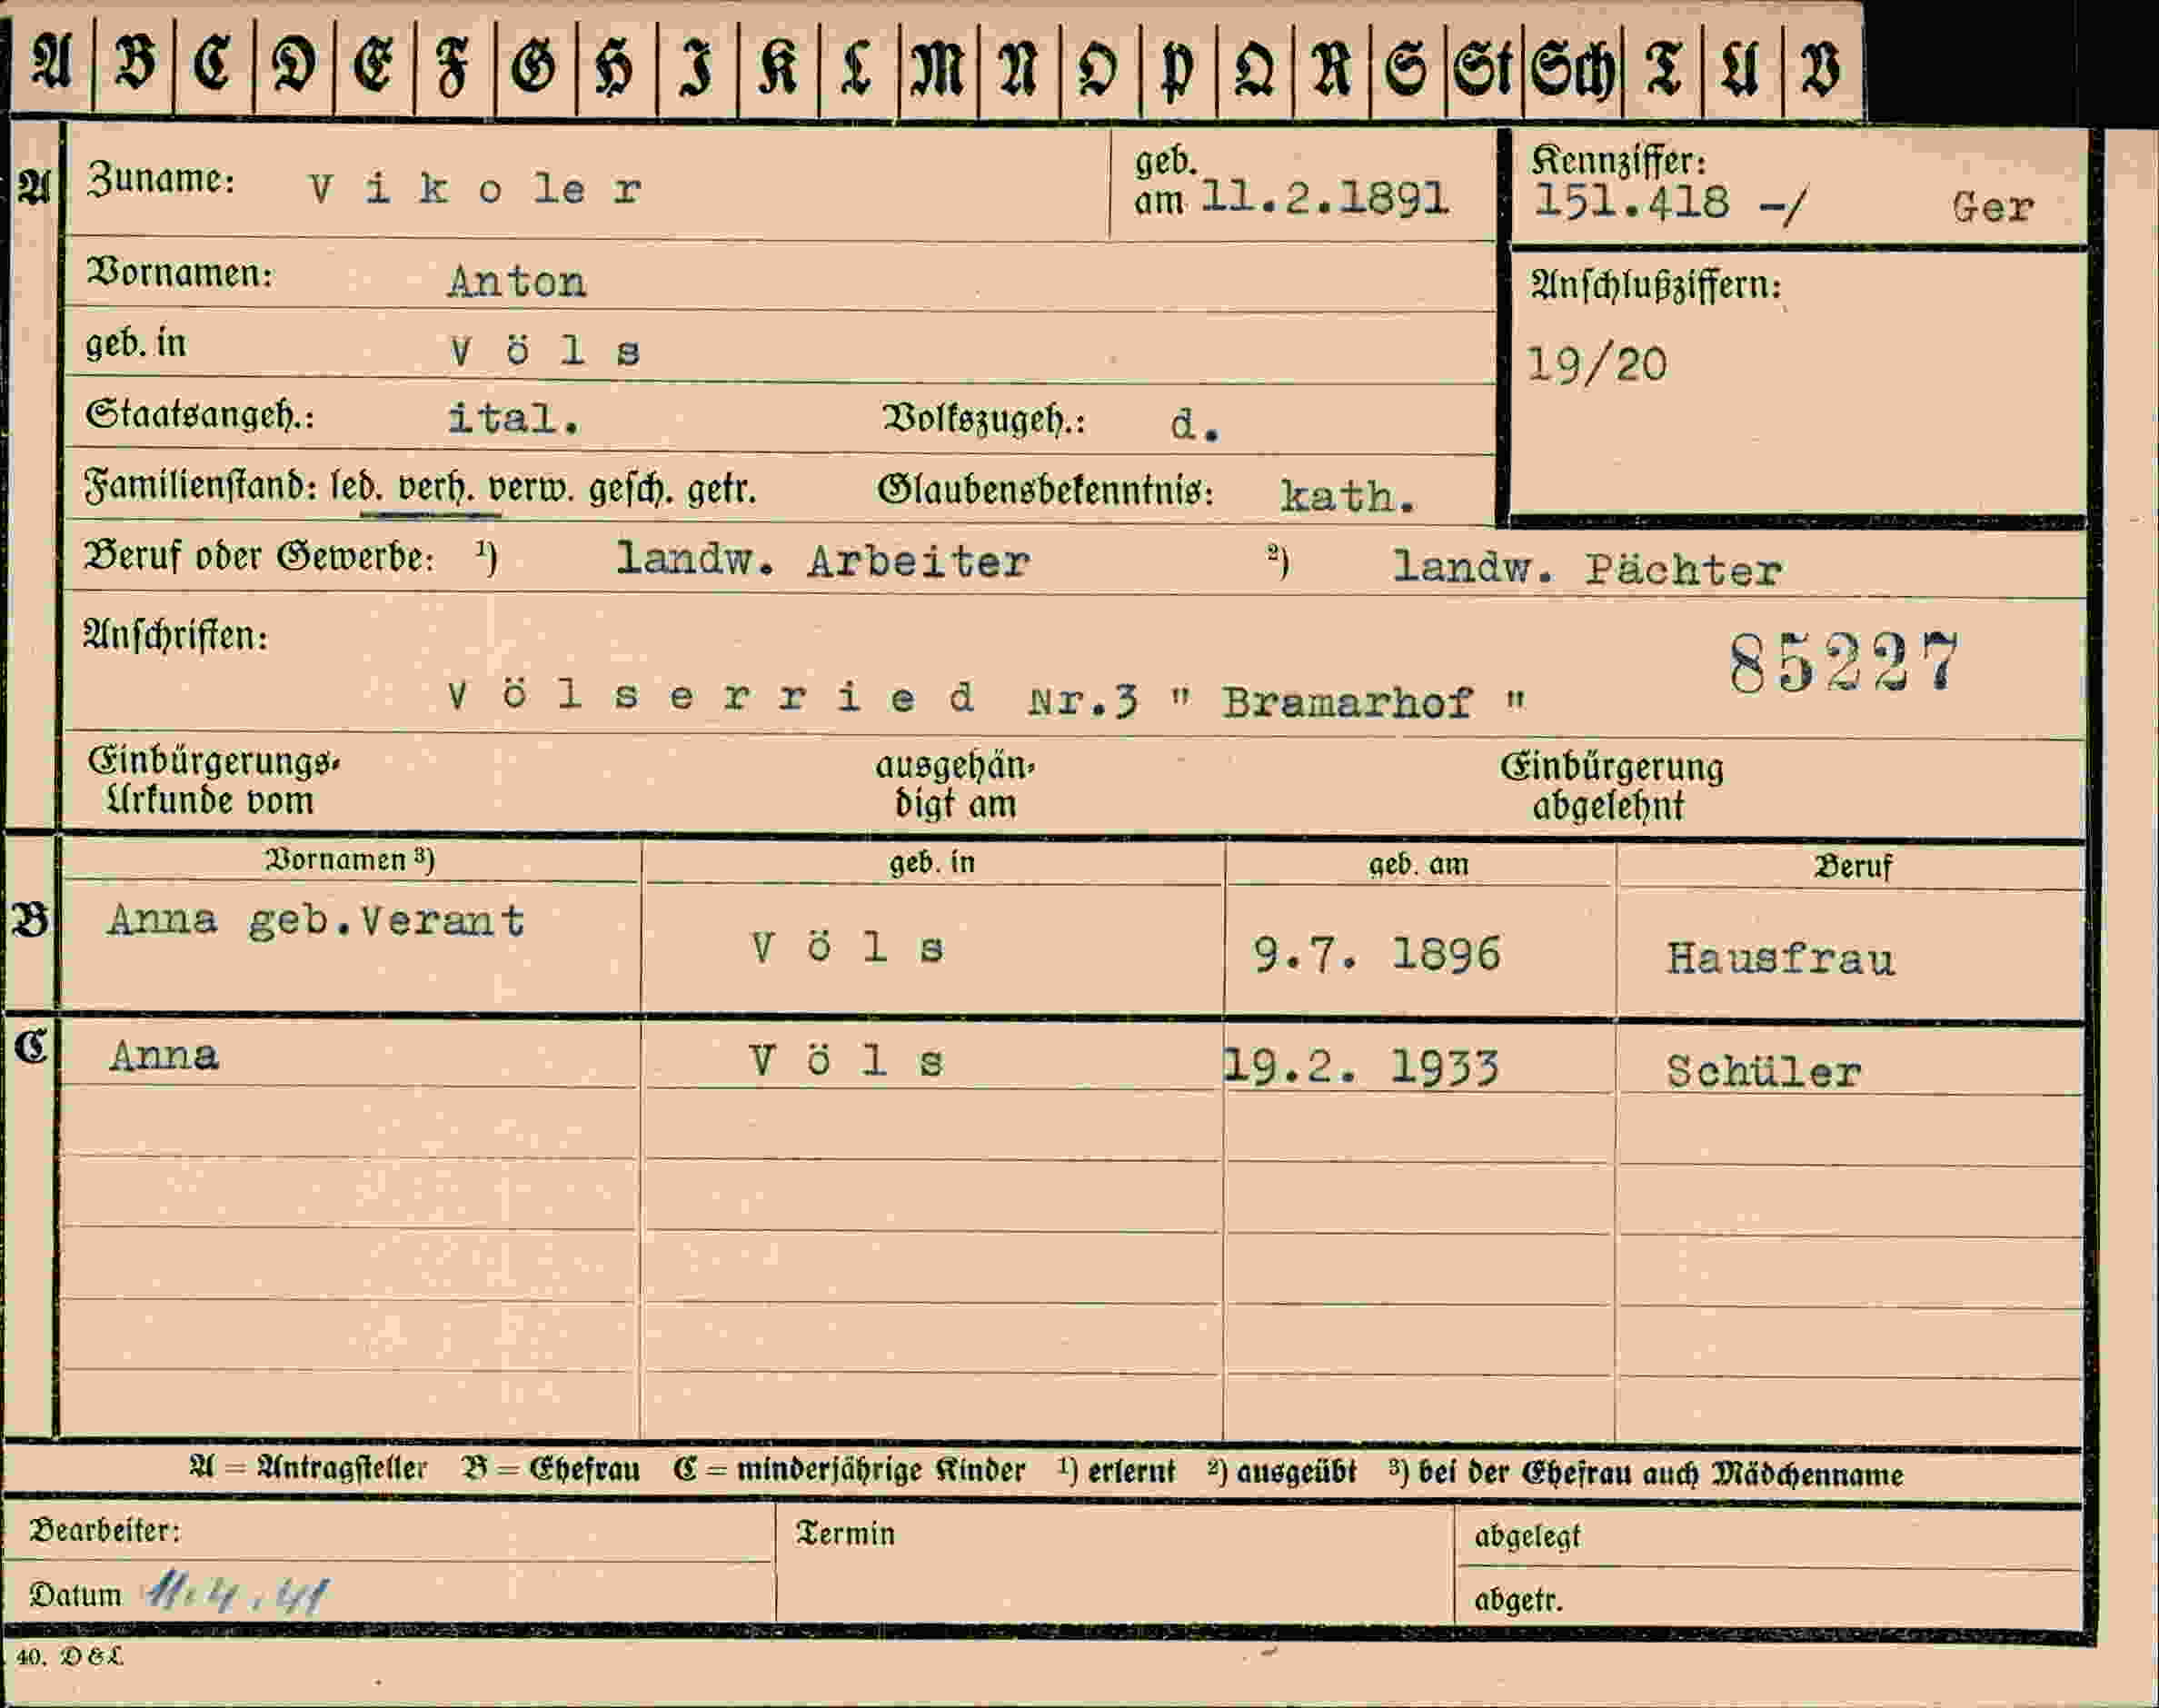 A B C D E F G H I K L M N O P Q R S St Sch T U V
A Zuname: V i k o le r geb. am 11.2.1891 Kennziffer: 151.418 -/ Ger
Vornamen: Anton Anschlußziffern:
geb. in V ö l s 19/20
Staatsangeh.: ital. Volkszugeh.: d.
Familienstand: led. verh. verw. gesch. getr. Glaubensbekenntnis: kath.
Beruf oder Gewerbe: ¹) landw. Arbeiter ²) landw. Pächter
Anschriften: 85227
V ö l s e r r i e d Nr.3 " Bramarhof "
Einbürgerungs- ausgehän- Einbürgerung
Urkunde vom digt am abgelehnt
Vornamen ³) geb. in geb. am Beruf
B Anna geb.Verant V ö l s 9.7. 1896 Hausfrau
C Anna V ö l s 19.2. 1933 Schüler
A = Antragsteller B = Ehefrau C = minderjährige Kinder ¹) erlernt ²) ausgeübt ³) bei der Ehefrau auch Mädchenname
Bearbeiter: Termin abgelegt
Datum 11.4.41 abgetr.
40. D&L